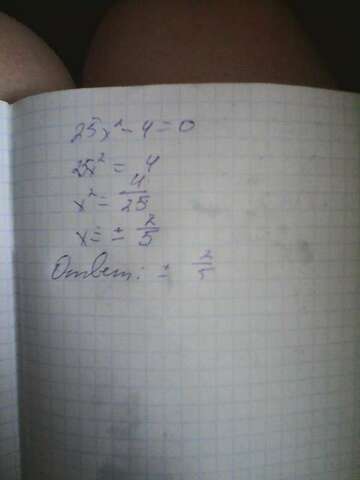 25x² - 4 = 0
25x² = 4
x² = 4/25
x = ± 2/5
Ответ: ± 2/5